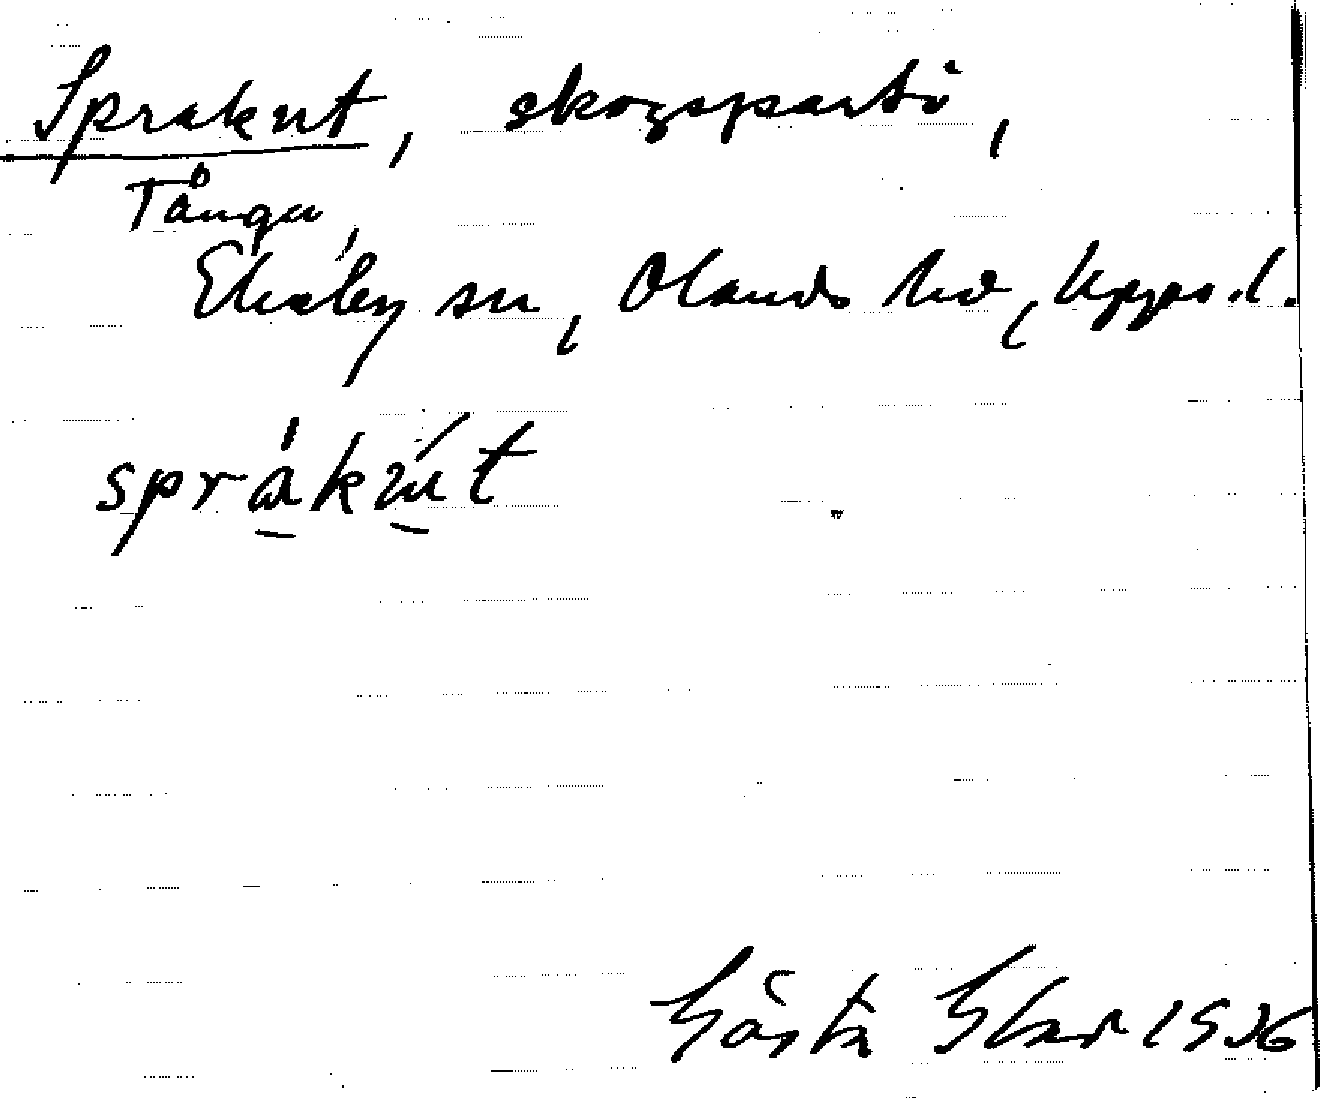 Sprakut, skogsparti,
Tånga,
Ekeby sn, Olands hd, Upps.l.
språkut
Gösta 1936